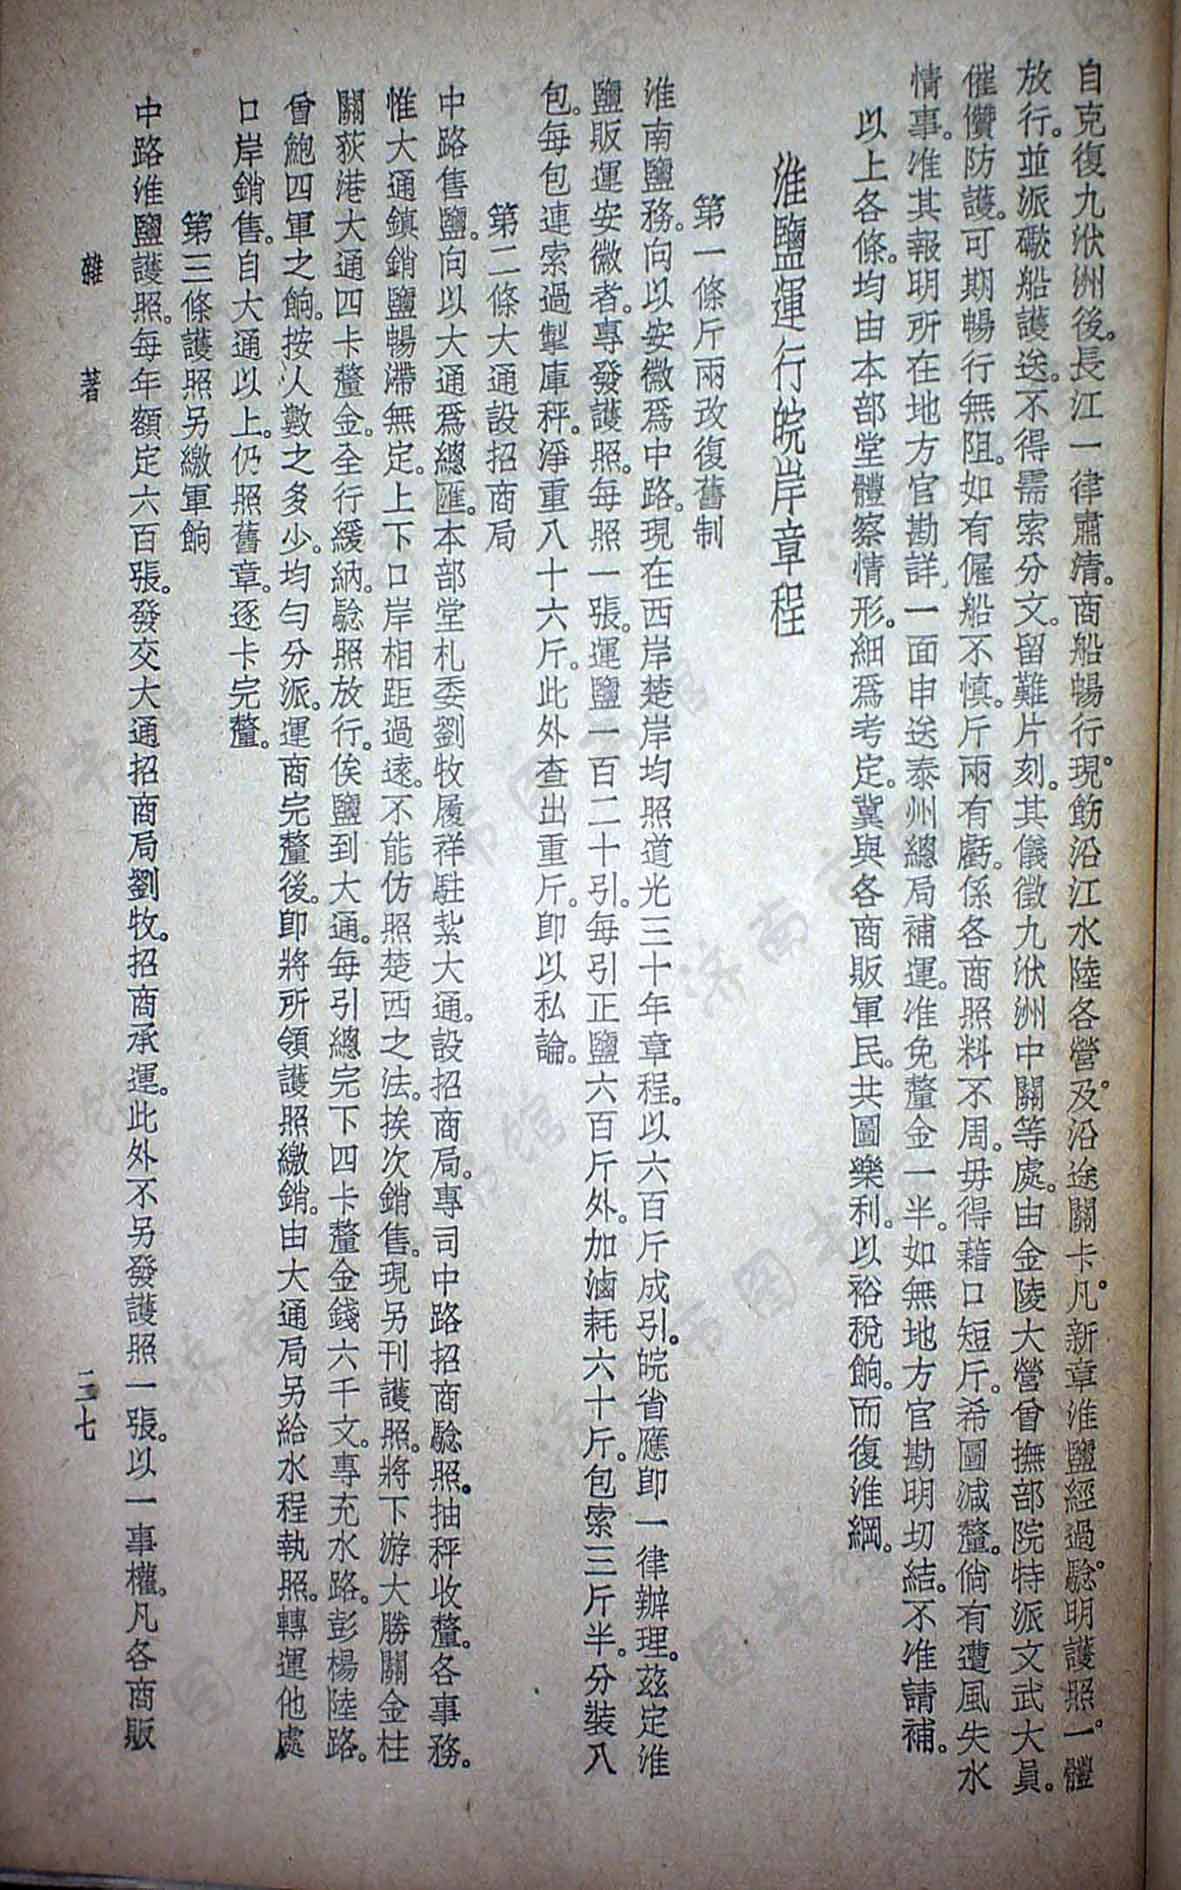 自克復九洑洲後。長江一律肅清。商船暢行。現飭沿江水陸各營。及沿途關卡。凡新章淮鹽經過。驗明護照。一體
放行。並派礮船護送。不得需索分文。留難片刻。其儀徵九洑洲中關等處。由金陵大營曾撫部院特派文武大員。
催儹防護。可期暢行無阻。如有僱船不慎。斤兩有虧。係各商照料不周。毋得藉口短斤。希圖減釐。倘有遭風失水
情事。准其報明所在地方官勘詳。一面申送泰州總局補運。准免釐金一半。如無地方官勘明切結。不准請補。
以上各條。均由本部堂體察情形。細爲考定。冀與各商販軍民。共圖樂利。以裕稅餉。而復淮綱。
淮鹽運行皖岸章程
第一條斤兩改復舊制
淮南鹽務。向以安徽爲中路。現在西岸楚岸均照道光三十年章程。以六百斤成引。皖省應卽一律辦理。茲定淮
鹽販運安徽者。專發護照。每照一張。運鹽一百二十引。每引正鹽六百斤外。加滷耗六十斤。包索三斤半。分裝八
包。每包連索過掣庫秤。淨重八十六斤。此外查出重斤。卽以私論。
第二條大通設招商局
中路售鹽。向以大通爲總匯。本部堂札委劉牧履祥駐紮大通。設招商局。專司中路招商驗照。抽秤收釐。各事務。
惟大通鎮銷鹽暢滯無定。上下口岸相距過遠。不能仿照楚西之法。挨次銷售。現另刊護照。將下游大勝關金柱
關荻港大通四卡釐金。全行緩納。驗照放行。俟鹽到大通。每引總完下四卡釐金錢六千文。專充水路。彭楊陸路。
曾鮑四軍之餉。按人數之多少。均勻分派。運商完釐後。卽將所領護照繳銷。由大通局另給水程執照。轉運他處
口岸銷售。自大通以上。仍照舊章。逐卡完釐。
第三條護照另繳軍餉
中路淮鹽護照。每年額定六百張。發交大通招商局劉牧。招商承運。此外不另發護照一張。以一事權。凡各商販
雜　著
二三七
济南市图书馆